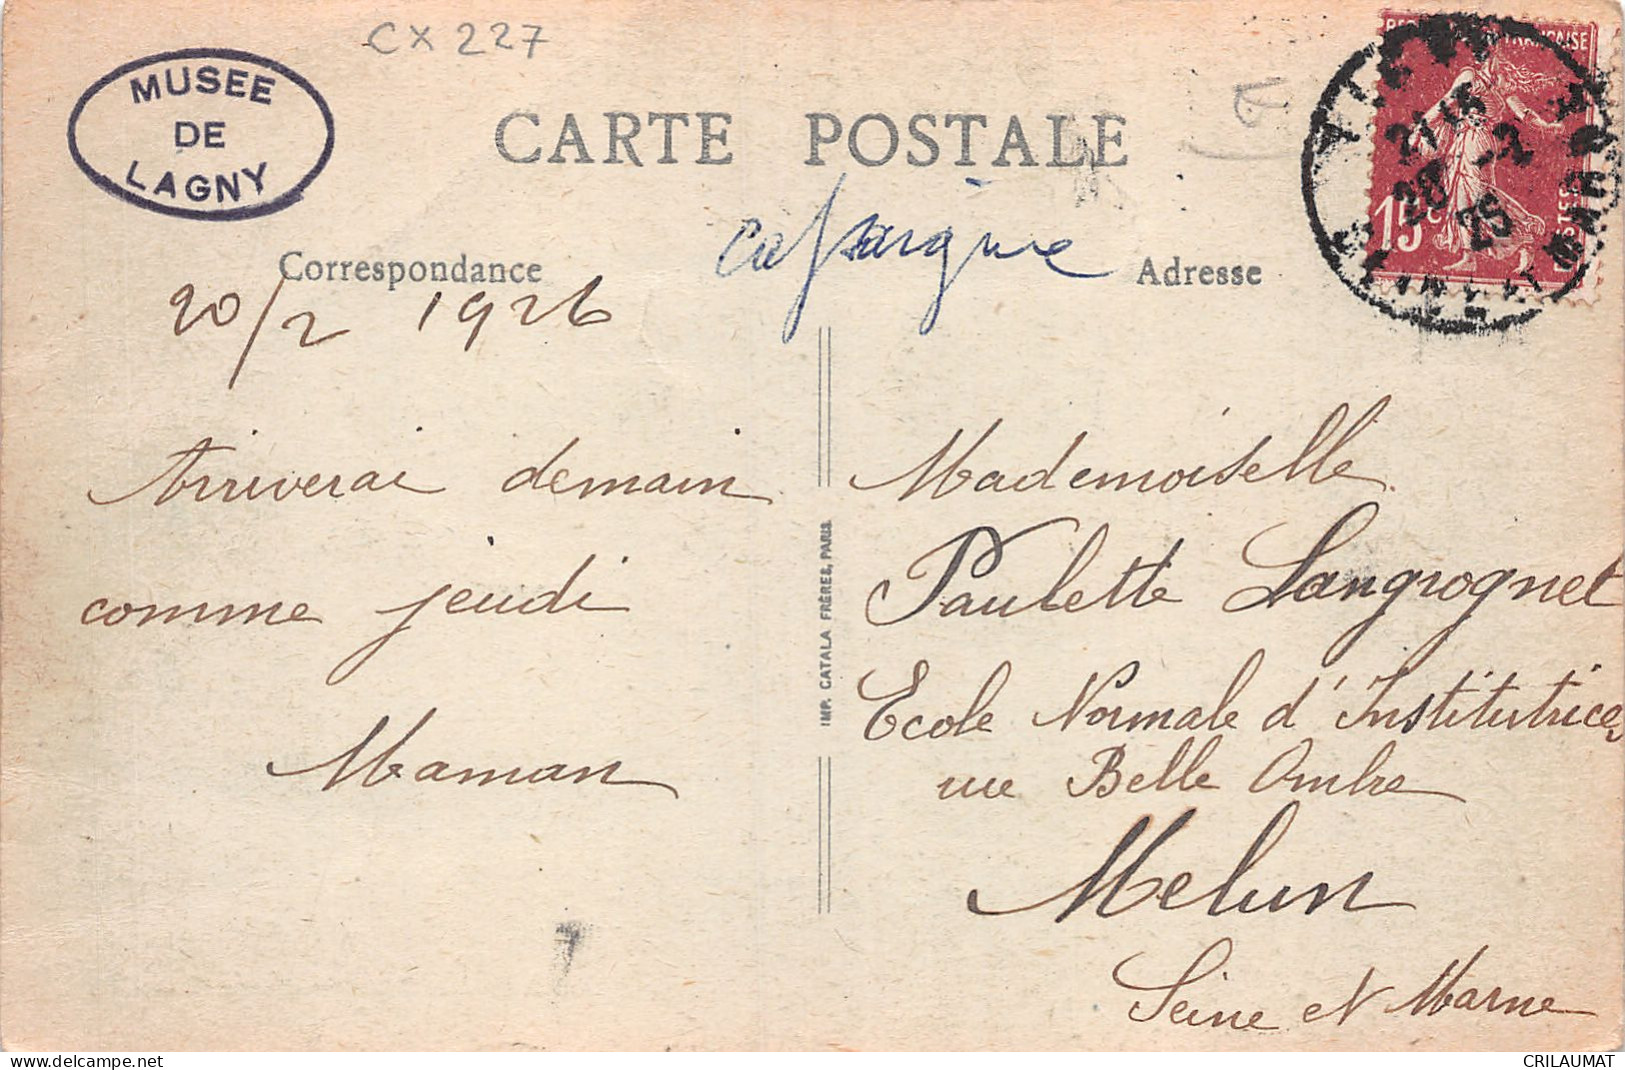 CX 227
MUSEE
DE
LAGNY
CARTE POSTALE
Correspondance
Adresse
20/2 1926
Arriverai demain
comme jeudi
Maman
IMP. CATALA FRÈRES, PARIS
FRANÇAISE
15c
POSTES
21 15
20 -2
26
Mademoiselle
Paulette Langrognet
Ecole Normale d'Institutrices
rue Belle Ombre
Melun
Seine et Marne
delcampe.net
CRILAUMAT